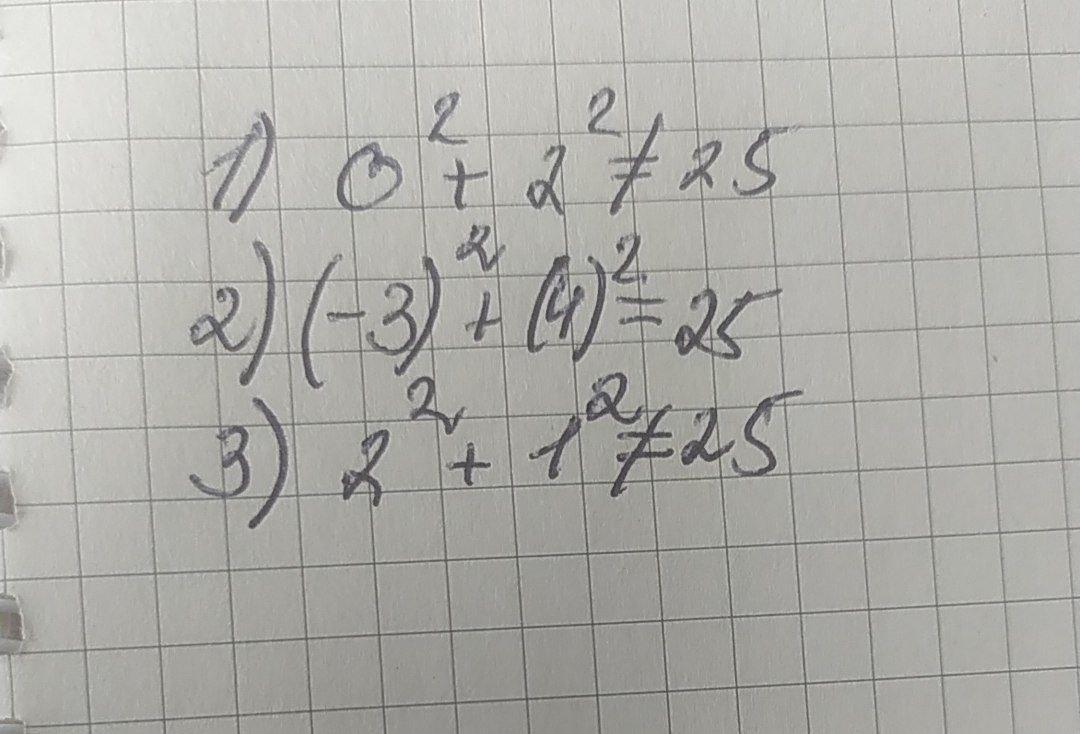 1) 0² + 2² ≠ 25
2) (-3)² + (4)² = 25
3) 2² + 1² ≠ 25